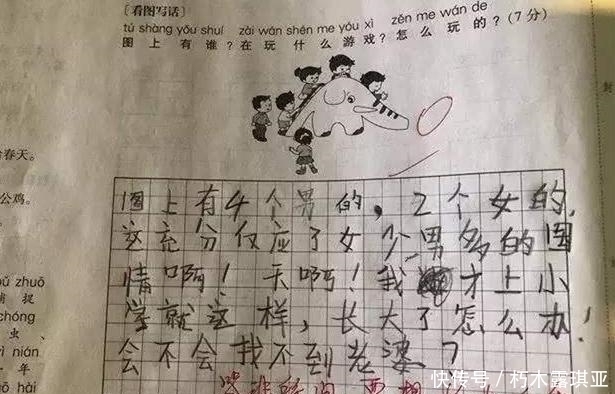 [看图写话]
tú shàng yǒu shuí zài wán shén me yóu xì zěn me wán de
图上有谁?在玩什么游戏?怎么玩的?(7分)
春天。
公鸡。
zhuō
捕捉
chóng
虫、
nián
一年
hài
封
图上有4个男的,2个女的,
这充分仅应了女少男多的国
情啊!天啊!我才上小
学就这样,长大了怎么办!
会不会找不到老婆?
快传号/朽木露琪亚